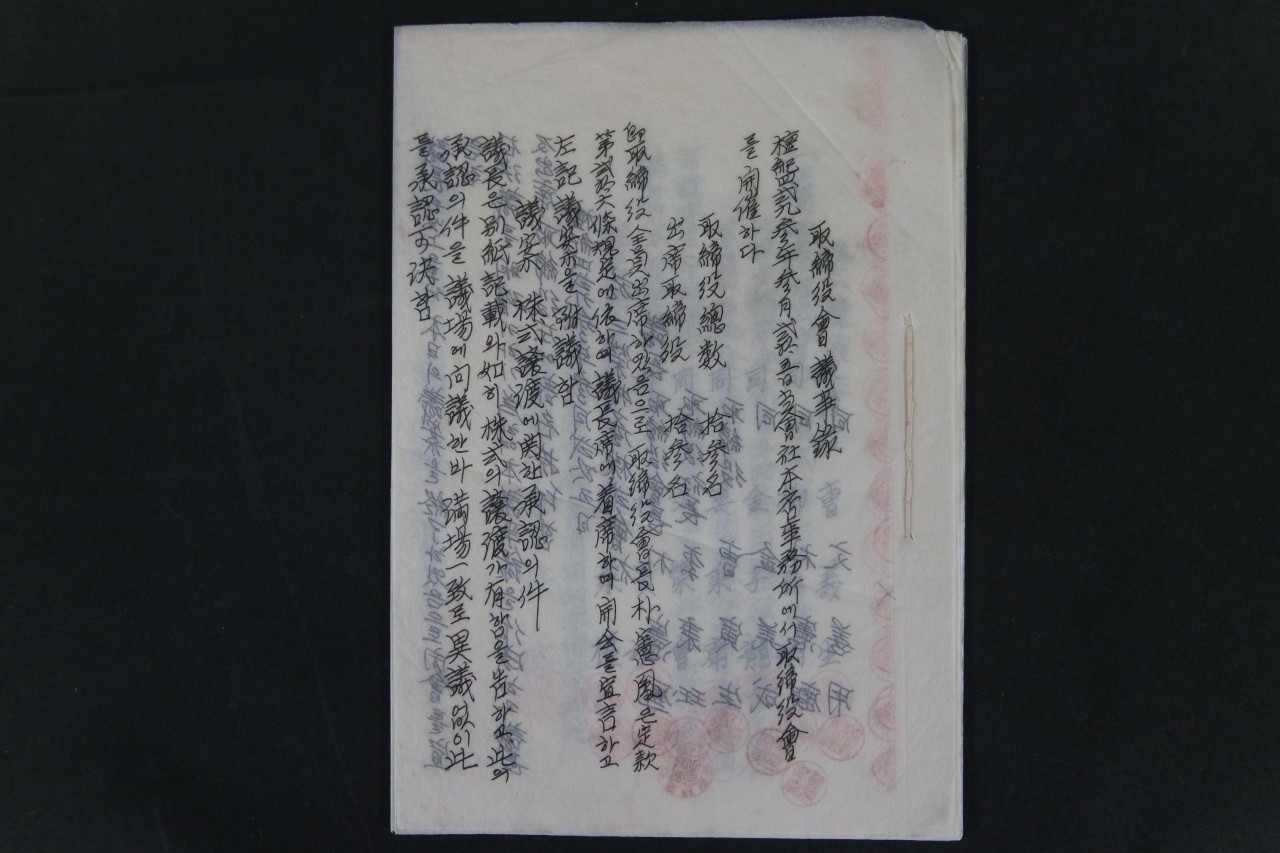 取締役會議事録
檀紀四貳九參年參月貳拾五日當會社本店事務所에서 取締役會
를 開催하다
取締役總数 拾參名
出席取締役 拾參名
取締役全員出席하였음으로 取締役會長朴憲鳳은定款
第貳拾六條規定에依하여 議長席에着席하여 開会를宣言하고
左記議案을附議함
議案 株式譲渡에関한承認의件
議長은別紙記載와如히株式의譲渡가有함을告하고此의
承認의件을議場에问議한바 満場一致로異議없이此
를承認可決함